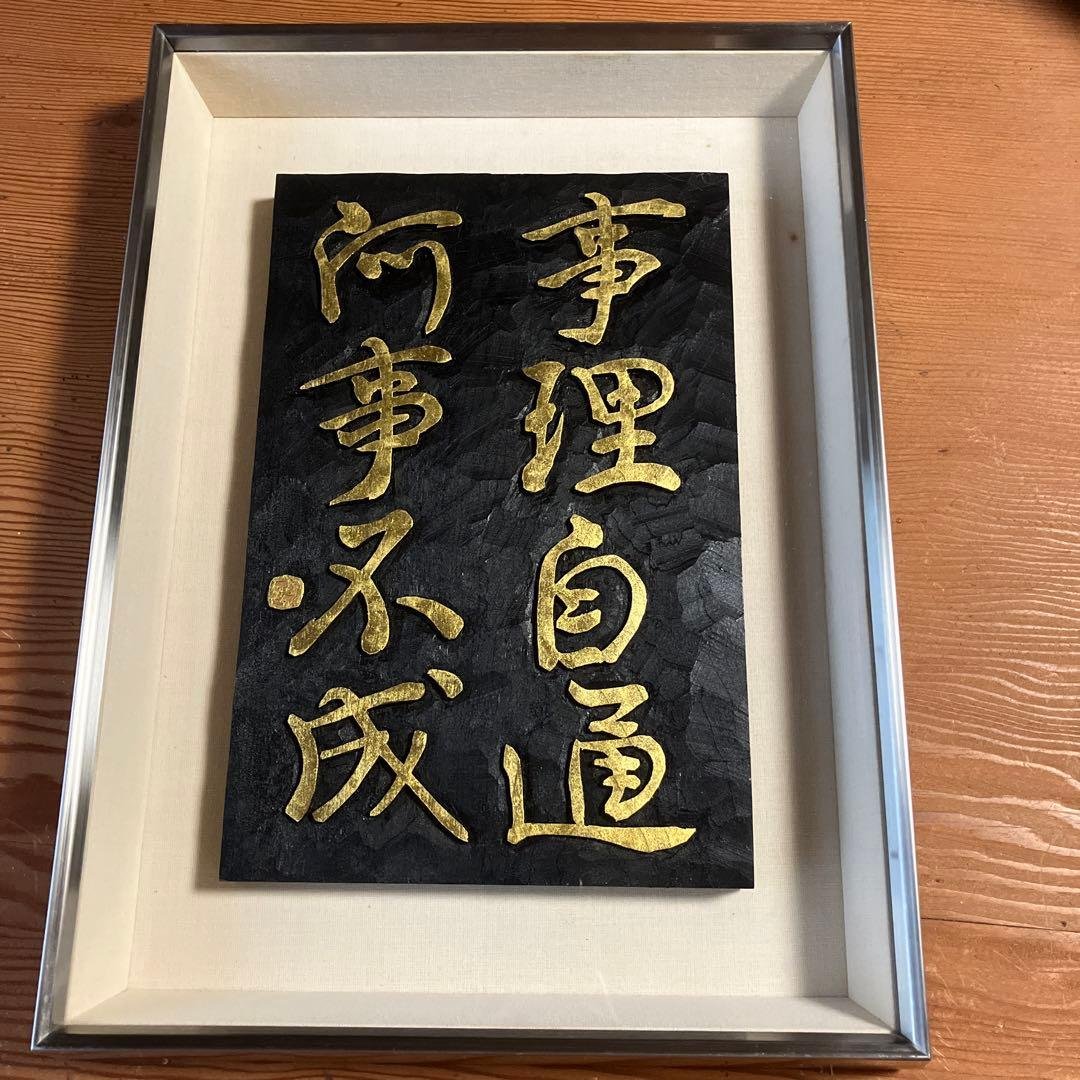 事理自通
何事不成